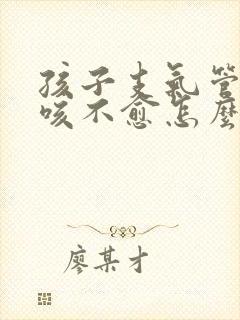 孩子支氣管
咳不愈怎麼
廖某才